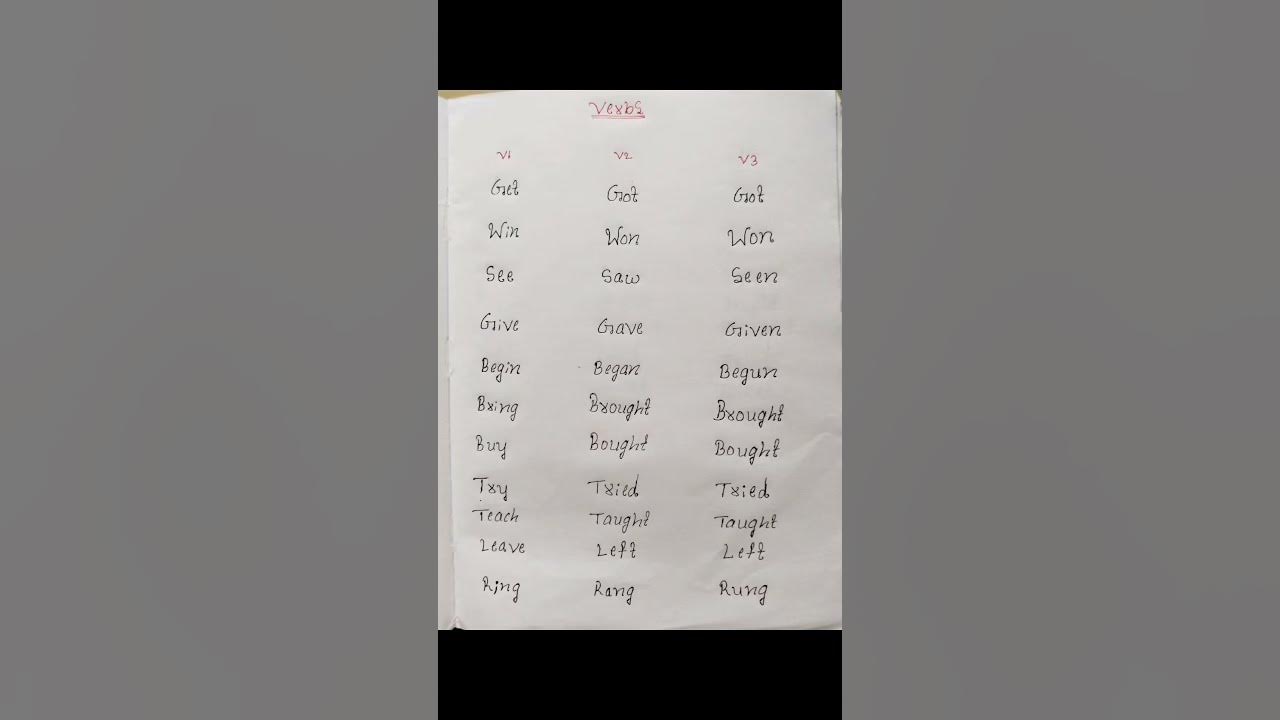 Verbs
V1 V2 V3
Get Got Got
Win Won Won
See Saw Seen
Give Gave Given
Begin Began Begun
Bring Brought Brought
Buy Bought Bought
Try Tried Tried
Teach Taught Taught
Leave Left Left
Ring Rang Rung